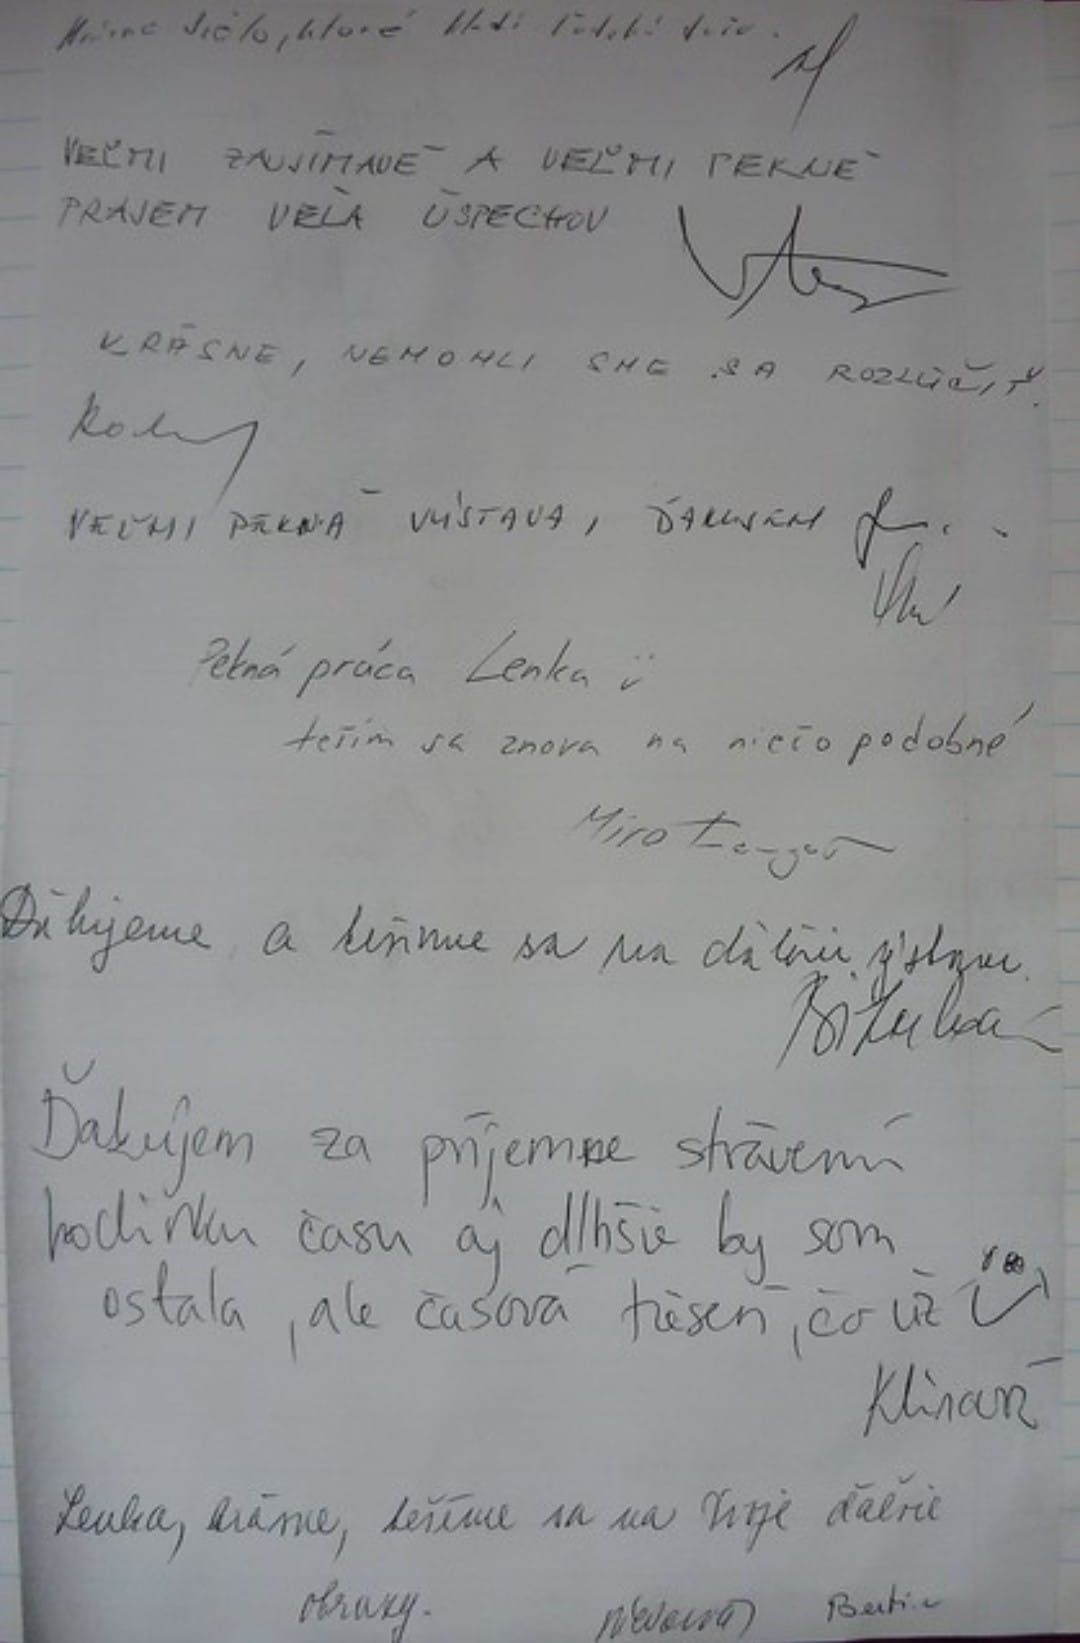 dielo, ktoré
VEĽMI ZAUJÍMAVÉ A VEĽMI PEKNÉ
PRAJEM VEĽA ÚSPECHOV
KRÁSNE, NEMOHLI SME SA ROZLÚČIŤ.
VEĽMI PEKNÁ VÝSTAVA, ĎAKUJEM
Pekná práca Lenka
teším sa znova na niečo podobné
Miro
Ďakujeme a tešíme sa na ďalšiu výstavu.
Ďakujem za príjemne strávenú
hodinku času aj dlhšie by som
ostala, ale časová tieseň, čo už
Klinová
Lenka, krásne, tešíme sa na Tvoje ďalšie
obrazy.